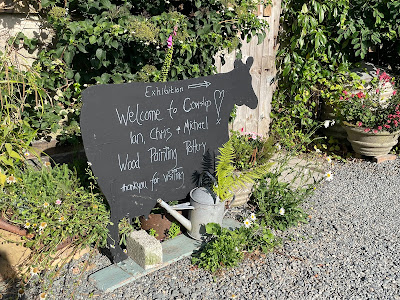 Exhibition
Welcome to Cowslip
Ian, Chris & Michael
Wood Painting Pottery
thankyou for visiting